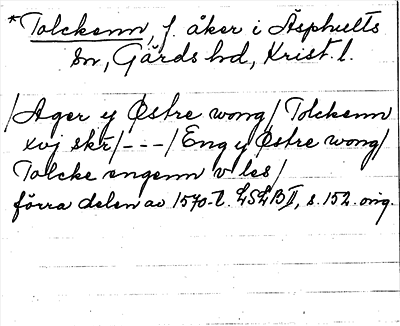 *Tolckenn, f. åker i Äsphults
sn, Gärds hd, Krist. l.
/Ager y Østre wong/ Tolckenn
xvj skr/---/Eng y Østre wong/
Tolcke engenn v les/
förra delen av 1570-t. LSLB II, s. 152. orig.